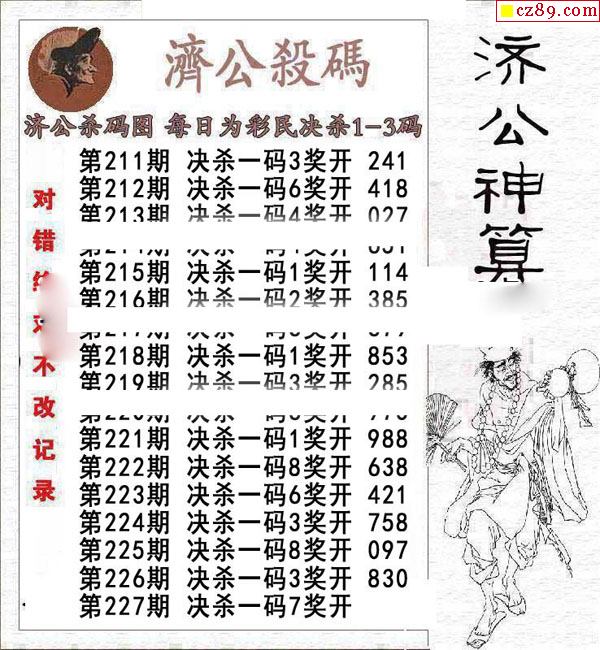 cz89.com
濟公殺碼
济公杀码图 每日为彩民决杀1-3码
第211期 决杀一码3奖开 241
第212期 决杀一码6奖开 418
第213期 决杀一码4奖开 027
第215期 决杀一码1奖开 114
第216期 决杀一码2奖开 385
第218期 决杀一码1奖开 853
第219期 决杀一码3奖开 285
第221期 决杀一码1奖开 988
第222期 决杀一码8奖开 638
第223期 决杀一码6奖开 421
第224期 决杀一码3奖开 758
第225期 决杀一码8奖开 097
第226期 决杀一码3奖开 830
第227期 决杀一码7奖开
对错 不改记录
济公神算